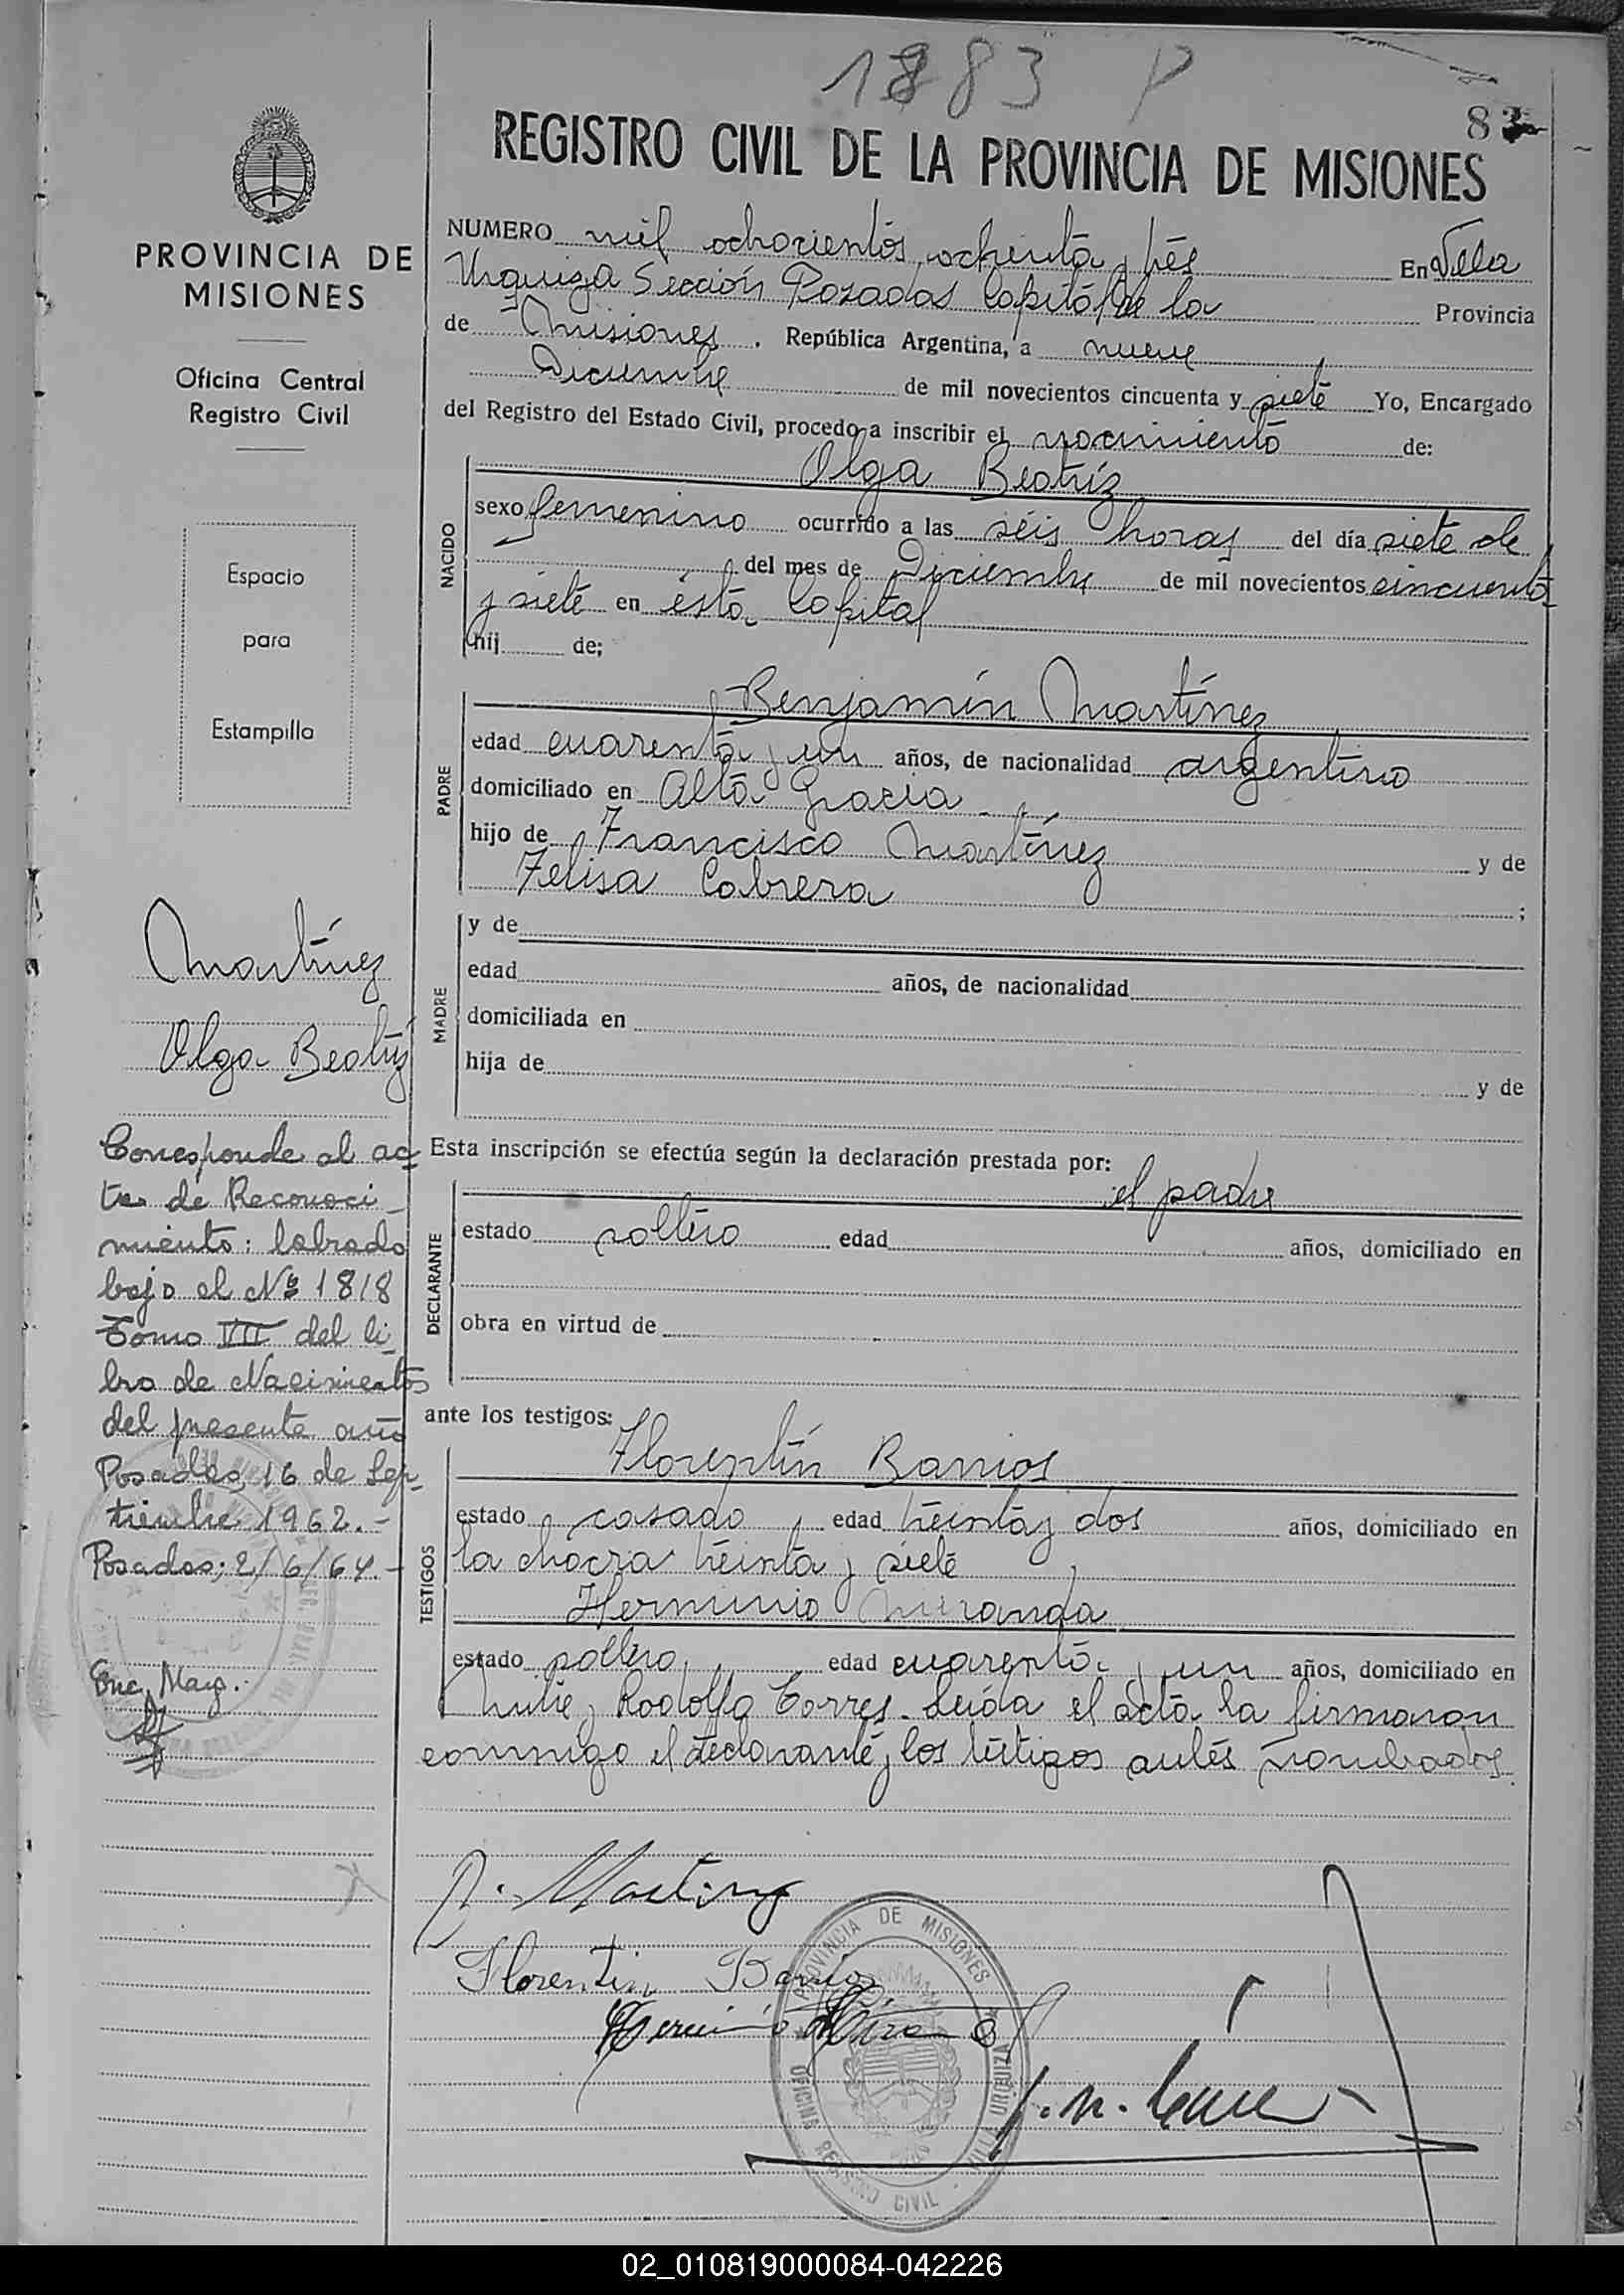 1883 P
83
REGISTRO CIVIL DE LA PROVINCIA DE MISIONES
PROVINCIA DE
MISIONES
Oficina Central
Registro Civil
Espacio
para
Estampilla
NUMERO mil ochocientos ochenta y tres En Villa
Urquiza Sección Posadas Capital de la Provincia
de Misiones. República Argentina, a nueve
Diciembre de mil novecientos cincuenta y siete Yo, Encargado
del Registro del Estado Civil, procedo a inscribir el nacimiento de:
NACIDO
Olga Beatríz
sexo femenino ocurrido a las séis horas del día siete de
del mes de Diciembre de mil novecientos cincuenta
y siete en ésta Capital
hij de;
PADRE
Benjamín Martínez
edad cuarenta y un años, de nacionalidad argentino
domiciliado en Alta Gracia
hijo de Francisco Martínez y de
Felisa Cabrera ;
MADRE
y de
edad años, de nacionalidad
domiciliada en
hija de y de
Martínez
Olga Beatríz
Corresponde al ac-
ta de Reconoci-
miento: labrado
bajo el Nº 1818
Tomo VII del li-
bro de Nacimientos
del presente año
Posadas, 16 de Sep-
tiembre 1962.-
Posadas; 2/6/64.-
Enc. Marg.
Esta inscripción se efectúa según la declaración prestada por:
DECLARANTE
el padre
estado soltero edad años, domiciliado en
obra en virtud de
ante los testigos:
TESTIGOS
Florentín Barrios
estado casado edad treinta y dos años, domiciliado en
la chacra treinta y siete
Herminio Miranda
estado soltero edad cuarenta y un años, domiciliado en
y Rodolfo Torres. Leída el acta la firmaron
conmigo el declarante y los testigos antes nombrados.
Martinez
Florentin Barrios
Herminio Miranda
PROVINCIA DE MISIONES
OFICINA REGISTRO CIVIL - VILLA URQUIZA
02_010819000084-042226